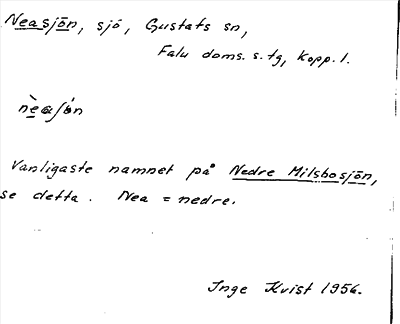 Neasjön, sjö, Gustafs sn,
Falu doms. s. tg, Kopp. l.
nèasjö́n
Vanligaste namnet på Nedre Milsbosjön,
se detta. Nea = nedre.
Inge Kvist 1956.